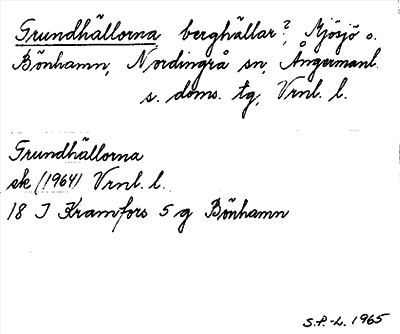 Grundhällorna berghällar?, Mjösjö o.
Bönhamn, Nordingrå sn, Ångermanl.
s. doms. tg, Vrnl. l.
Grundhällorna
ek (1964) Vrnl. l.
18 I Kramfors 5 g Bönhamn
S.P.-L. 1965